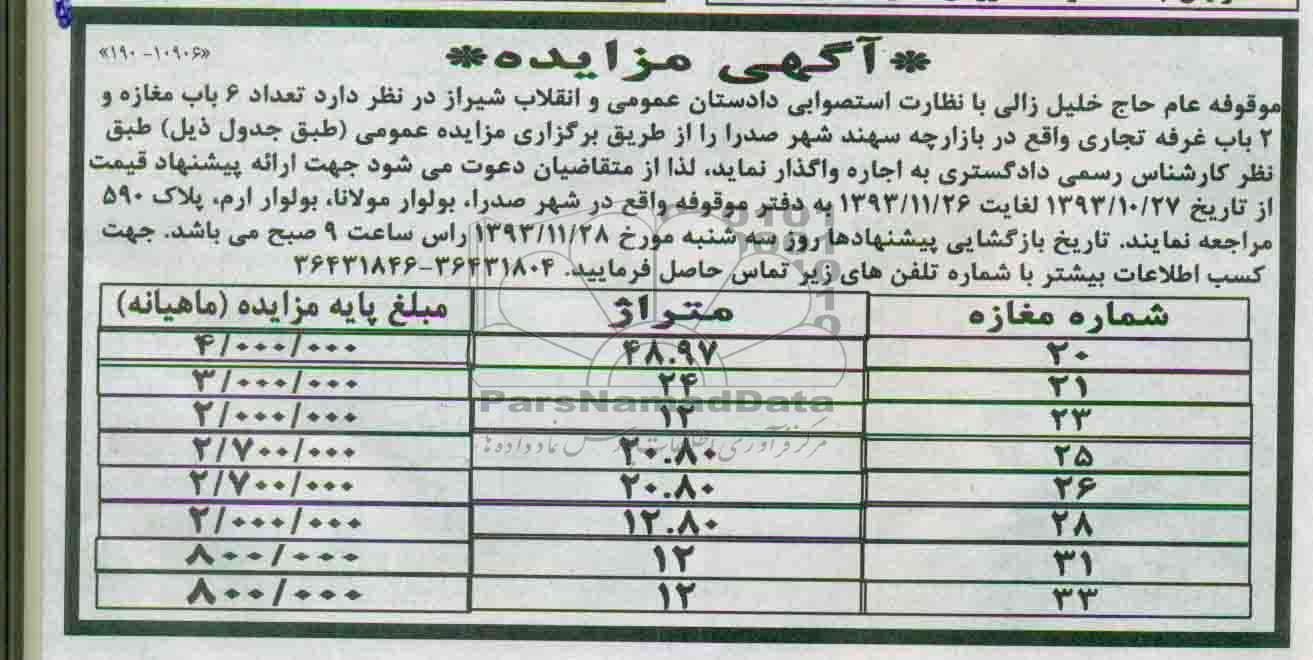 «۱۹۰-۱۰۹۰۶»
*آگهی مزایده*
موقوفه عام حاج خلیل زالی با نظارت استصوابی دادستان عمومی و انقلاب شیراز در نظر دارد تعداد ۶ باب مغازه و
۲ باب غرفه تجاری واقع در بازارچه سهند شهر صدرا را از طریق برگزاری مزایده عمومی (طبق جدول ذیل) طبق
نظر کارشناس رسمی دادگستری به اجاره واگذار نماید، لذا از متقاضیان دعوت می شود جهت ارائه پیشنهاد قیمت
از تاریخ ۱۳۹۳/۱۰/۲۷ لغایت ۱۳۹۳/۱۱/۲۶ به دفتر موقوفه واقع در شهر صدرا، بولوار مولانا، بولوار ارم، پلاک ۵۹۰
مراجعه نمایند. تاریخ بازگشایی پیشنهادها روز سه شنبه مورخ ۱۳۹۳/۱۱/۲۸ راس ساعت ۹ صبح می باشد. جهت
کسب اطلاعات بیشتر با شماره تلفن های زیر تماس حاصل فرمایید. ۳۶۴۳۱۸۰۴-۳۶۴۳۱۸۴۶
شماره مغازه متراژ مبلغ پایه مزایده (ماهیانه)
۲۰ ۴۸.۹۷ ۴/۰۰۰/۰۰۰
۲۱ ۲۴ ۳/۰۰۰/۰۰۰
۲۳ ۱۲ ۲/۰۰۰/۰۰۰
۲۵ ۲۰.۸۰ ۲/۷۰۰/۰۰۰
۲۶ ۲۰.۸۰ ۲/۷۰۰/۰۰۰
۲۸ ۱۲.۸۰ ۲/۰۰۰/۰۰۰
۳۱ ۱۲ ۸۰۰/۰۰۰
۳۳ ۱۲ ۸۰۰/۰۰۰
ParsNamadData
مرکز فرآوری اطلاعات پارس نماد داده ها